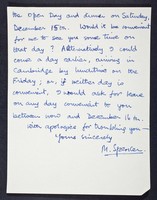 the Open Day and dinner on Saturday,
December 15th. Would it be convenient
for me to see you some time on
that day? Alternatively I could
come a day earlier, arriving in
Cambridge by lunchtime on the
Friday; or, if neither day is
convenient, I would ask for leave
on any day convenient to you
between now and December 16th.
With apologies for troubling you —
Yours sincerely
M.